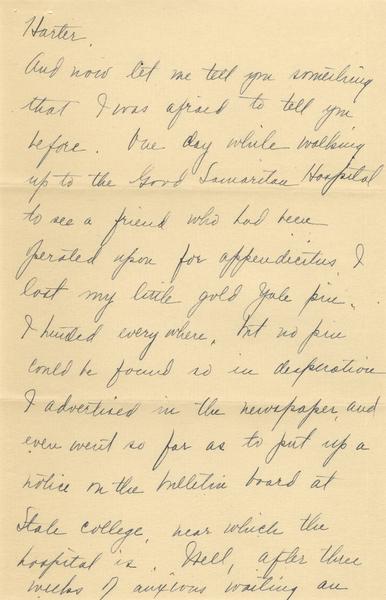 Harter.
And now let me tell you something
that I was afraid to tell you
before. One day while walking
up to the Good Samaritan Hospital
to see a friend who had been
operated upon for appendicitus, I
lost my little gold Yale pin.
I hunted everywhere, but no pin
could be found so in desperation
I advertised in the newspaper and
even went so far as to put up a
notice on the bulletin board at
State college, near which the
hospital is. Well, after three
weeks of anxious waiting an